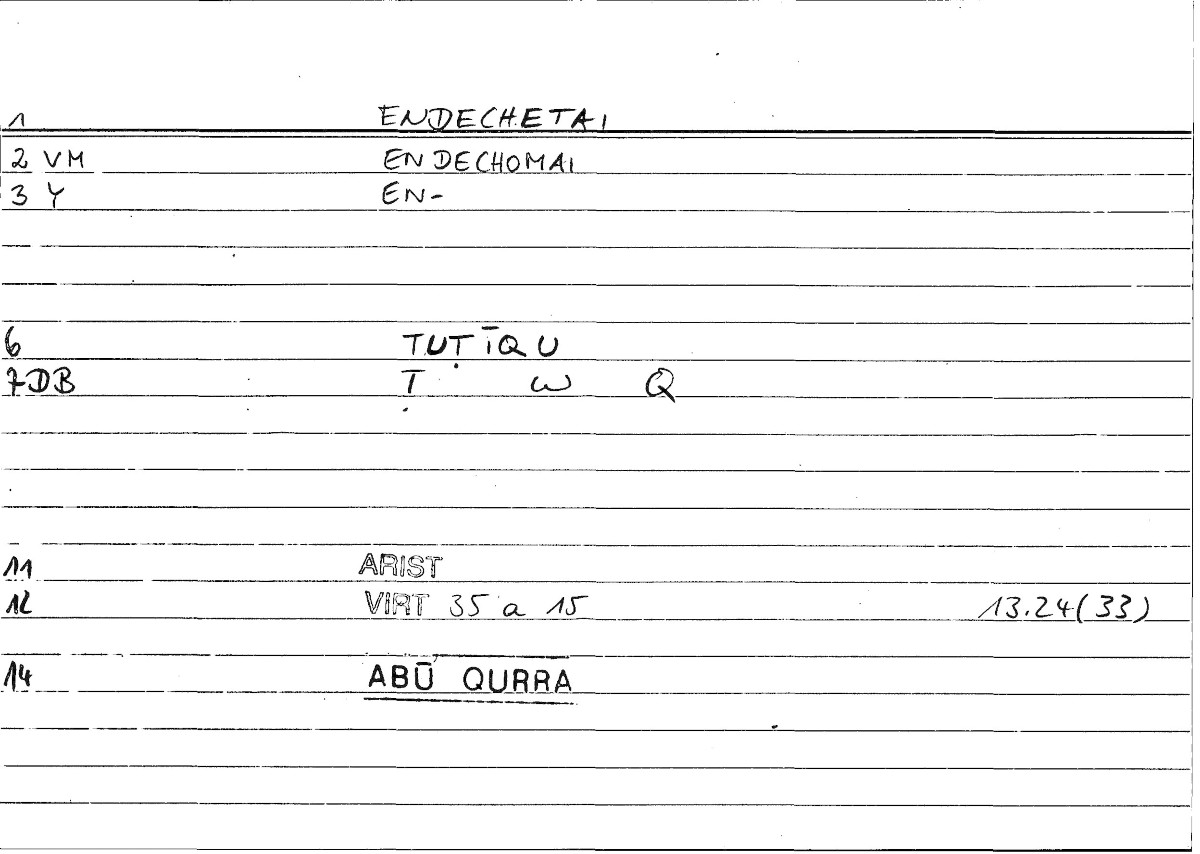 1 ENDECHETAI
2 VM ENDECHOMAI
3 Y EN-
6 TUṬĪQU
7DB Ṭ W Q
11 ARIST
12 VIRT 35 a 15 13.24(33)
14 ABŪ QURRA